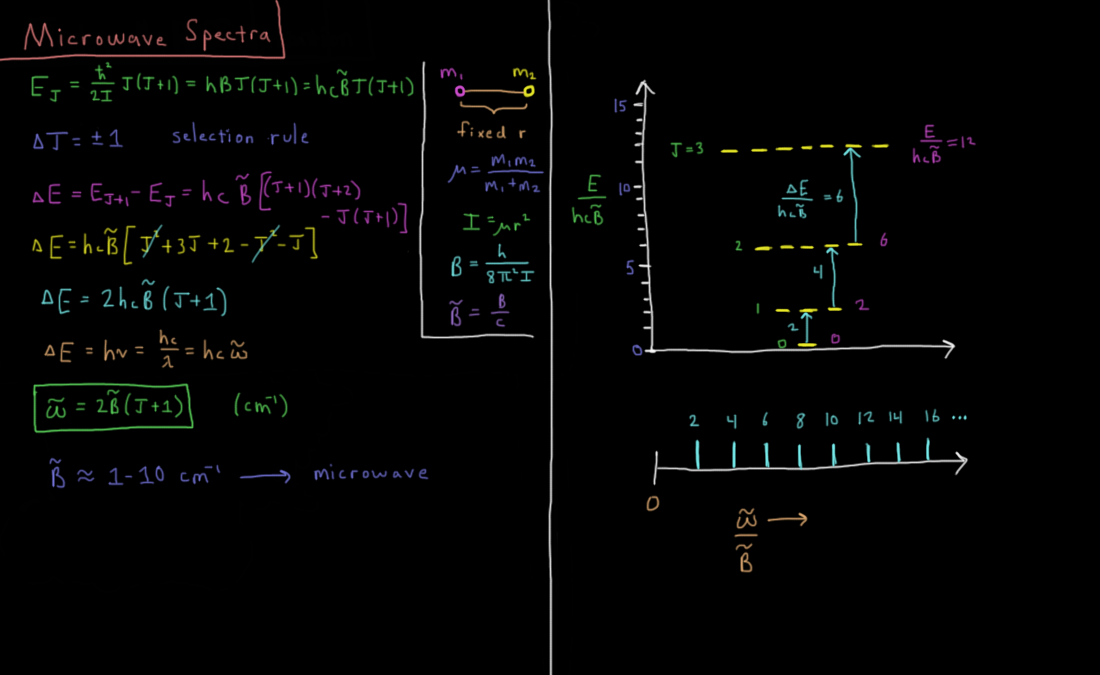 Microwave Spectra
E_J = ħ²/2I J(J+1) = hBJ(J+1) = hcB̃J(J+1)
ΔJ = ±1 selection rule
ΔE = E_J+1 - E_J = hc B̃[(J+1)(J+2)
- J(J+1)]
ΔE = hcB̃[J² + 3J + 2 - J² - J]
ΔE = 2hcB̃(J+1)
ΔE = hν = hc/λ = hcω̃
ω̃ = 2B̃(J+1) (cm⁻¹)
B̃ ≈ 1-10 cm⁻¹ → microwave
m₁ m₂
fixed r
μ = m₁m₂/m₁+m₂
I = μr²
B = h/8π²I
B̃ = B/c
E/hcB̃
15
10
5
0
J=3 E/hcB̃ = 12
ΔE/hcB̃ = 6
2 6
4
1 2
2
0 0
2 4 6 8 10 12 14 16 ...
0
ω̃/B̃ →